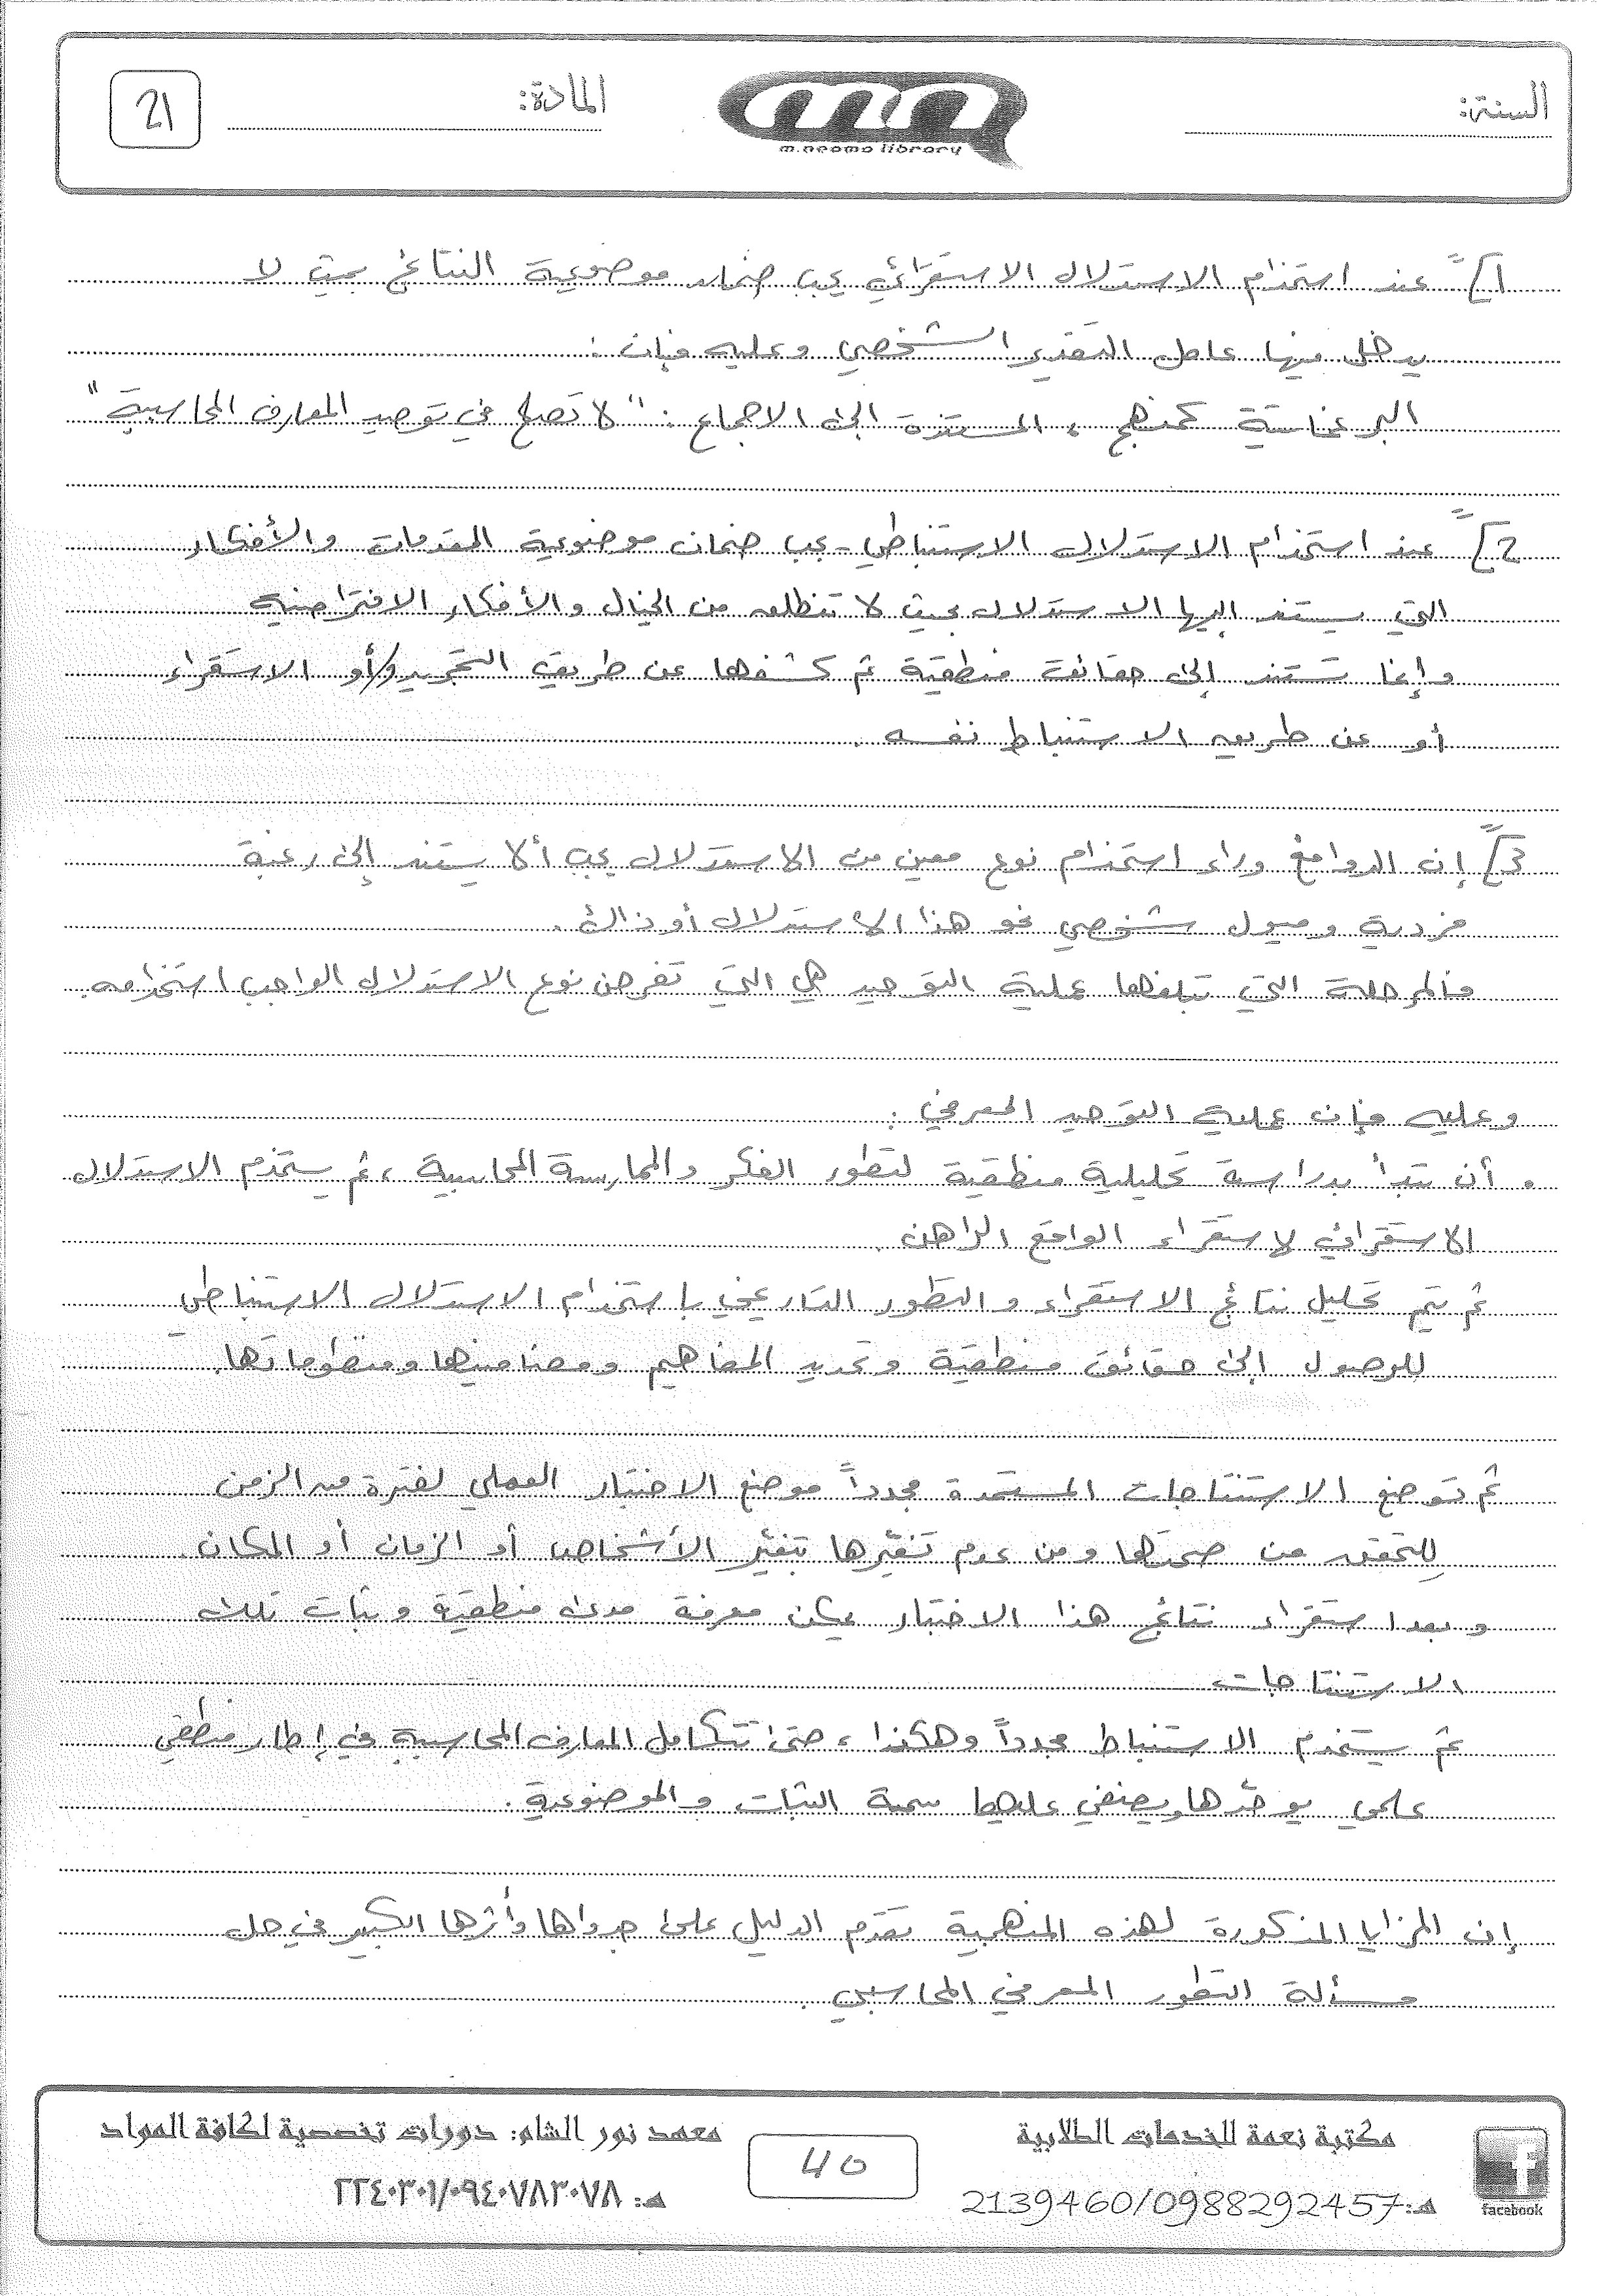 السنة:
m.neama library
المادة:
21
1) عند استخدام الاستدلال الاستقرائي يجب ضمان موضوعية النتائج بحيث لا
يدخل فيها عامل التقدير الشخصي وعليه فإن :
البرغماتية كمنهج ، المستندة إلى الاجماع : " لا تصلح في توحيد المعارف المحاسبية "
2) عند استخدام الاستدلال الاستنباطي - يجب ضمان موضوعية المقدمات والأفكار
التي يستند إليها الاستدلال بحيث لا تنطلق من الخيال والأفكار الافتراضية
وإنما تستند إلى حقائق منطقية تم كشفها عن طريق التجريد و/أو الاستقراء
أو عن طريق الاستنباط نفسه .
3) إن الدوافع وراء استخدام نوع معين من الاستدلال يجب ألا يستند إلى رغبة
فردية وميول شخصي نحو هذا الاستدلال أو ذاك .
فالمرحلة التي تبلغها عملية التوحيد هي التي تفرض نوع الاستدلال الواجب استخدامه .
وعليه فإن عملية التوحيد المعرفي :
. أن تبدأ بدراسة تحليلية منطقية لتطور الفكر والممارسة المحاسبية ، ثم يستخدم الاستدلال
الاستقرائي لاستقراء الواقع الراهن .
ثم يتم تحليل نتائج الاستقراء والتطور التاريخي باستخدام الاستدلال الاستنباطي
للوصول إلى حقائق منطقية وتحديد المفاهيم ومضامينها ومنظوماتها .
ثم توضع الاستنتاجات المستمدة مجدداً موضع الاختبار العملي لفترة من الزمن
للتحقق من صحتها ومن عدم تغيّرها بتغيّر الأشخاص أو الزمان أو المكان .
وبعد استقراء نتائج هذا الاختبار يمكن معرفة مدى منطقية وثبات تلك
الاستنتاجات
ثم يستخدم الاستنباط مجدداً وهكذا ، حتى تتكامل المعارف المحاسبية في إطار منطقي
علمي يوحّدها ويضفي عليها سمة الثبات والموضوعية .
إن المزايا المذكورة لهذه المنهجية تقدّم الدليل على جدواها وأثرها الكبير في حل
مسألة التطور المعرفي المحاسبي .
مكتبة نعمة للخدمات الطلابية
هـ: 2139460/0988292457
facebook
40
معهد نور الشام: دورات تخصصية لكافة المواد
هـ: ٢٢٤٠٣٠١/٠٩٤٠٧٨٣٠٧٨